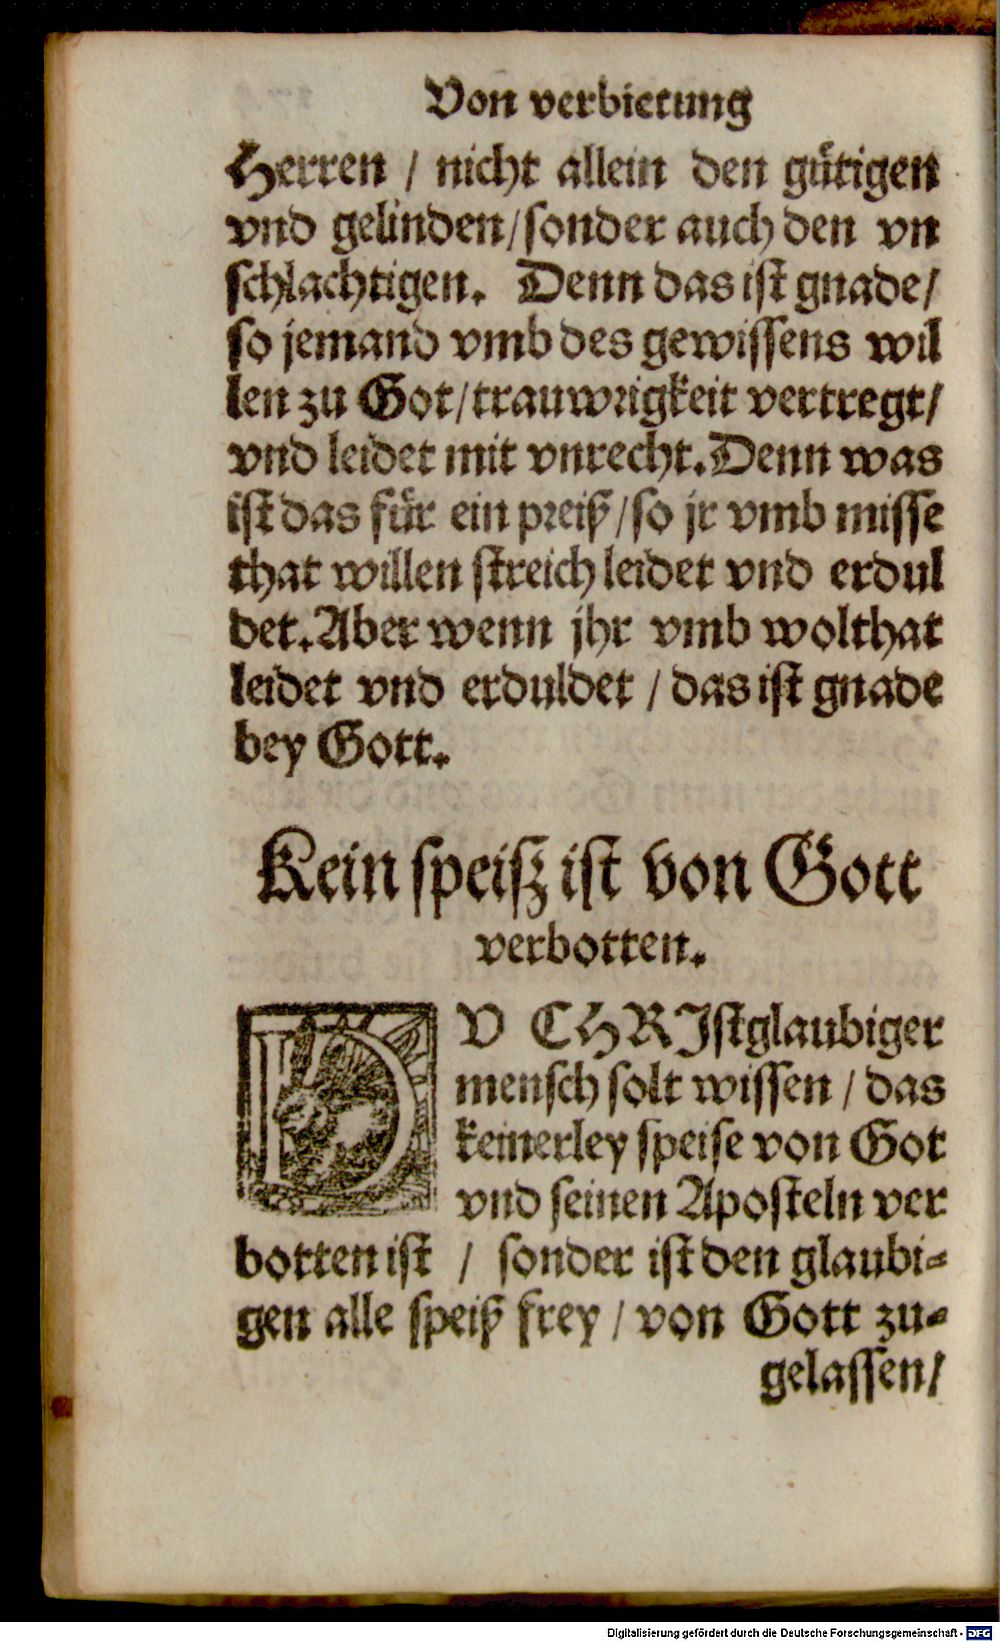 Von verbietung
Herren / nicht allein den gütigen
vnd gelinden/sonder auch den vn
schlachtigen. Denn das ist gnade/
so jemand vmb des gewissens wil
len zu Got/trauwrigkeit vertregt/
vnd leidet mit vnrecht. Denn was
ist das für ein preiß/so jr vmb misse
that willen streich leidet vnd erdul
det. Aber wenn jhr vmb wolthat
leidet vnd erduldet / das ist gnade
bey Gott.
Kein speisz ist von Gott
verbotten.
DV CHRIstglaubiger
mensch solt wissen / das
keinerley speise von Got
vnd seinen Aposteln ver
botten ist / sonder ist den glaubi=
gen alle speiß frey / von Gott zu=
gelassen/
Digitalisierung gefördert durch die Deutsche Forschungsgemeinschaft - DFG